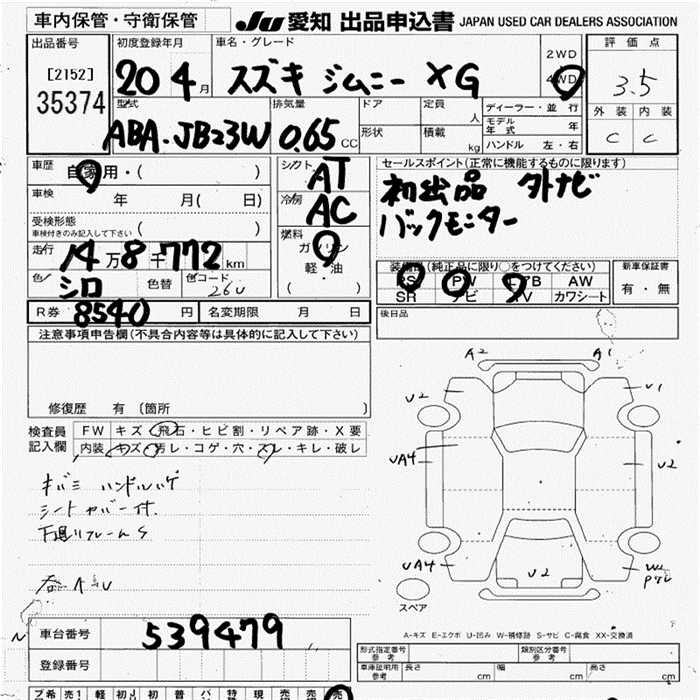 車内保管・守衛保管
JU 愛知 出品申込書 JAPAN USED CAR DEALERS ASSOCIATION
出品番号 初度登録年月 車名・グレード 2WD 4WD 評価点
[2152] 35374
20 4月 スズキ ジムニー XG
3.5
型式 排気量 ドア 定員 人 ディーラー・並行 外装 内装
ABA-JB23W 0.65 CC 形状 積載 kg モデル年式 年 C C
ハンドル 左・右
車歴 自家用・( ) シフト AT セールスポイント(正常に機能するものに限ります)
車検 年 月( 日) 冷房 AC 初出品 外ナビ
受検形態 車検付きのみ記入して下さい ( ) バックモニター
走行 14万8千772km 燃料 ガソリン 軽・油 ( )
色 シロ 色替 色コード 26U
装備品(純正品に限り○をつけてください) 新車保証書
SR ナビ TV カワシート 有・無
PW AW
R券 8540 円 名変期限 月 日 後日品
注意事項申告欄(不具合内容等は具体的に記入して下さい)
修復歴 有 (箇所 )
検査員記入欄 FW キズ・飛石・ヒビ割・リペア跡・X要
内装 キズ・汚レ・コゲ・穴・スレ・キレ・破レ
キバミ ハンドルハゲ
シートカバー付
下廻りフレームS
A2 A1
U2 U1
UA4 U2
UA4 U2 W2
スペア
A-キズ E-エクボ U-凹み W-補修跡 S-サビ C-腐食 XX-交換済
車台番号 539479
登録番号
形式指定番号 参考 類別区分番号 参考
車庫証明用 参考 長さ cm 幅 cm 高さ cm